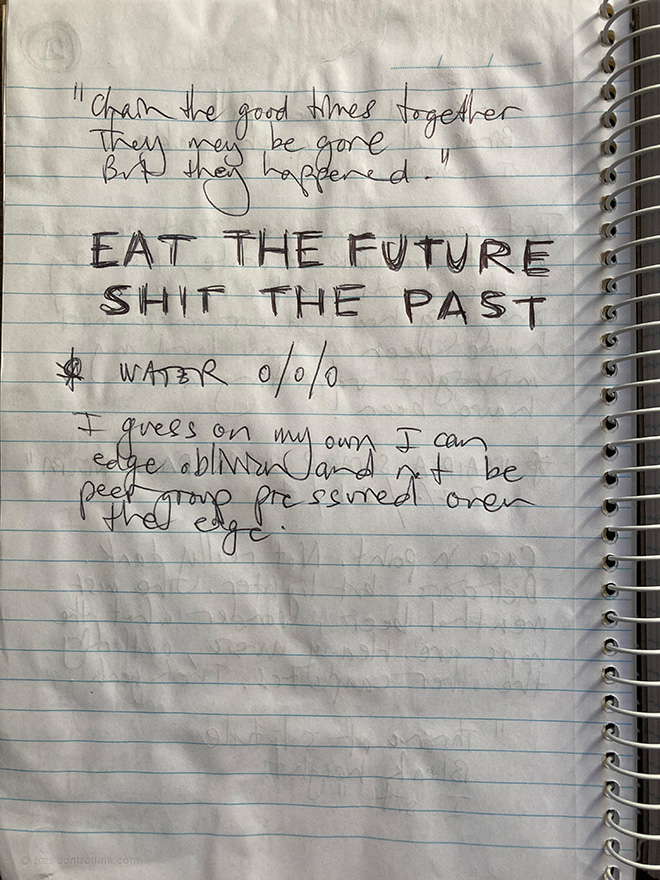 "Chain the good times together
They may be gone
But they happened."
EAT THE FUTURE
SHIT THE PAST
WATER 0/0/0
I guess on my own I can
edge oblivion and not be
peer group pressured over
the edge.
© 2025 controltime.com